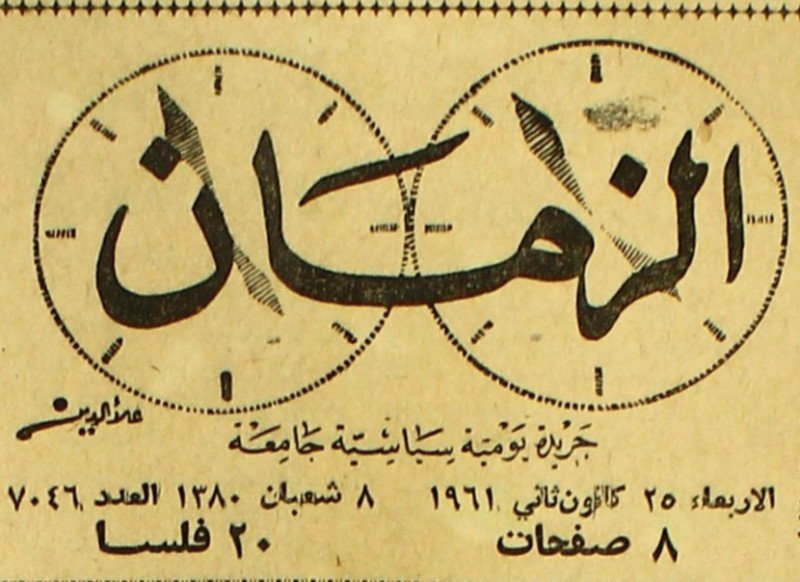 الزمان
علاءالدين
جريدة يومية سياسية جامعة
الاربعاء ٢٥ كانون ثاني ١٩٦١ ٨ شعبان ١٣٨٠ العدد ٧٠٤٦
٨ صفحات ٢٠ فلسا